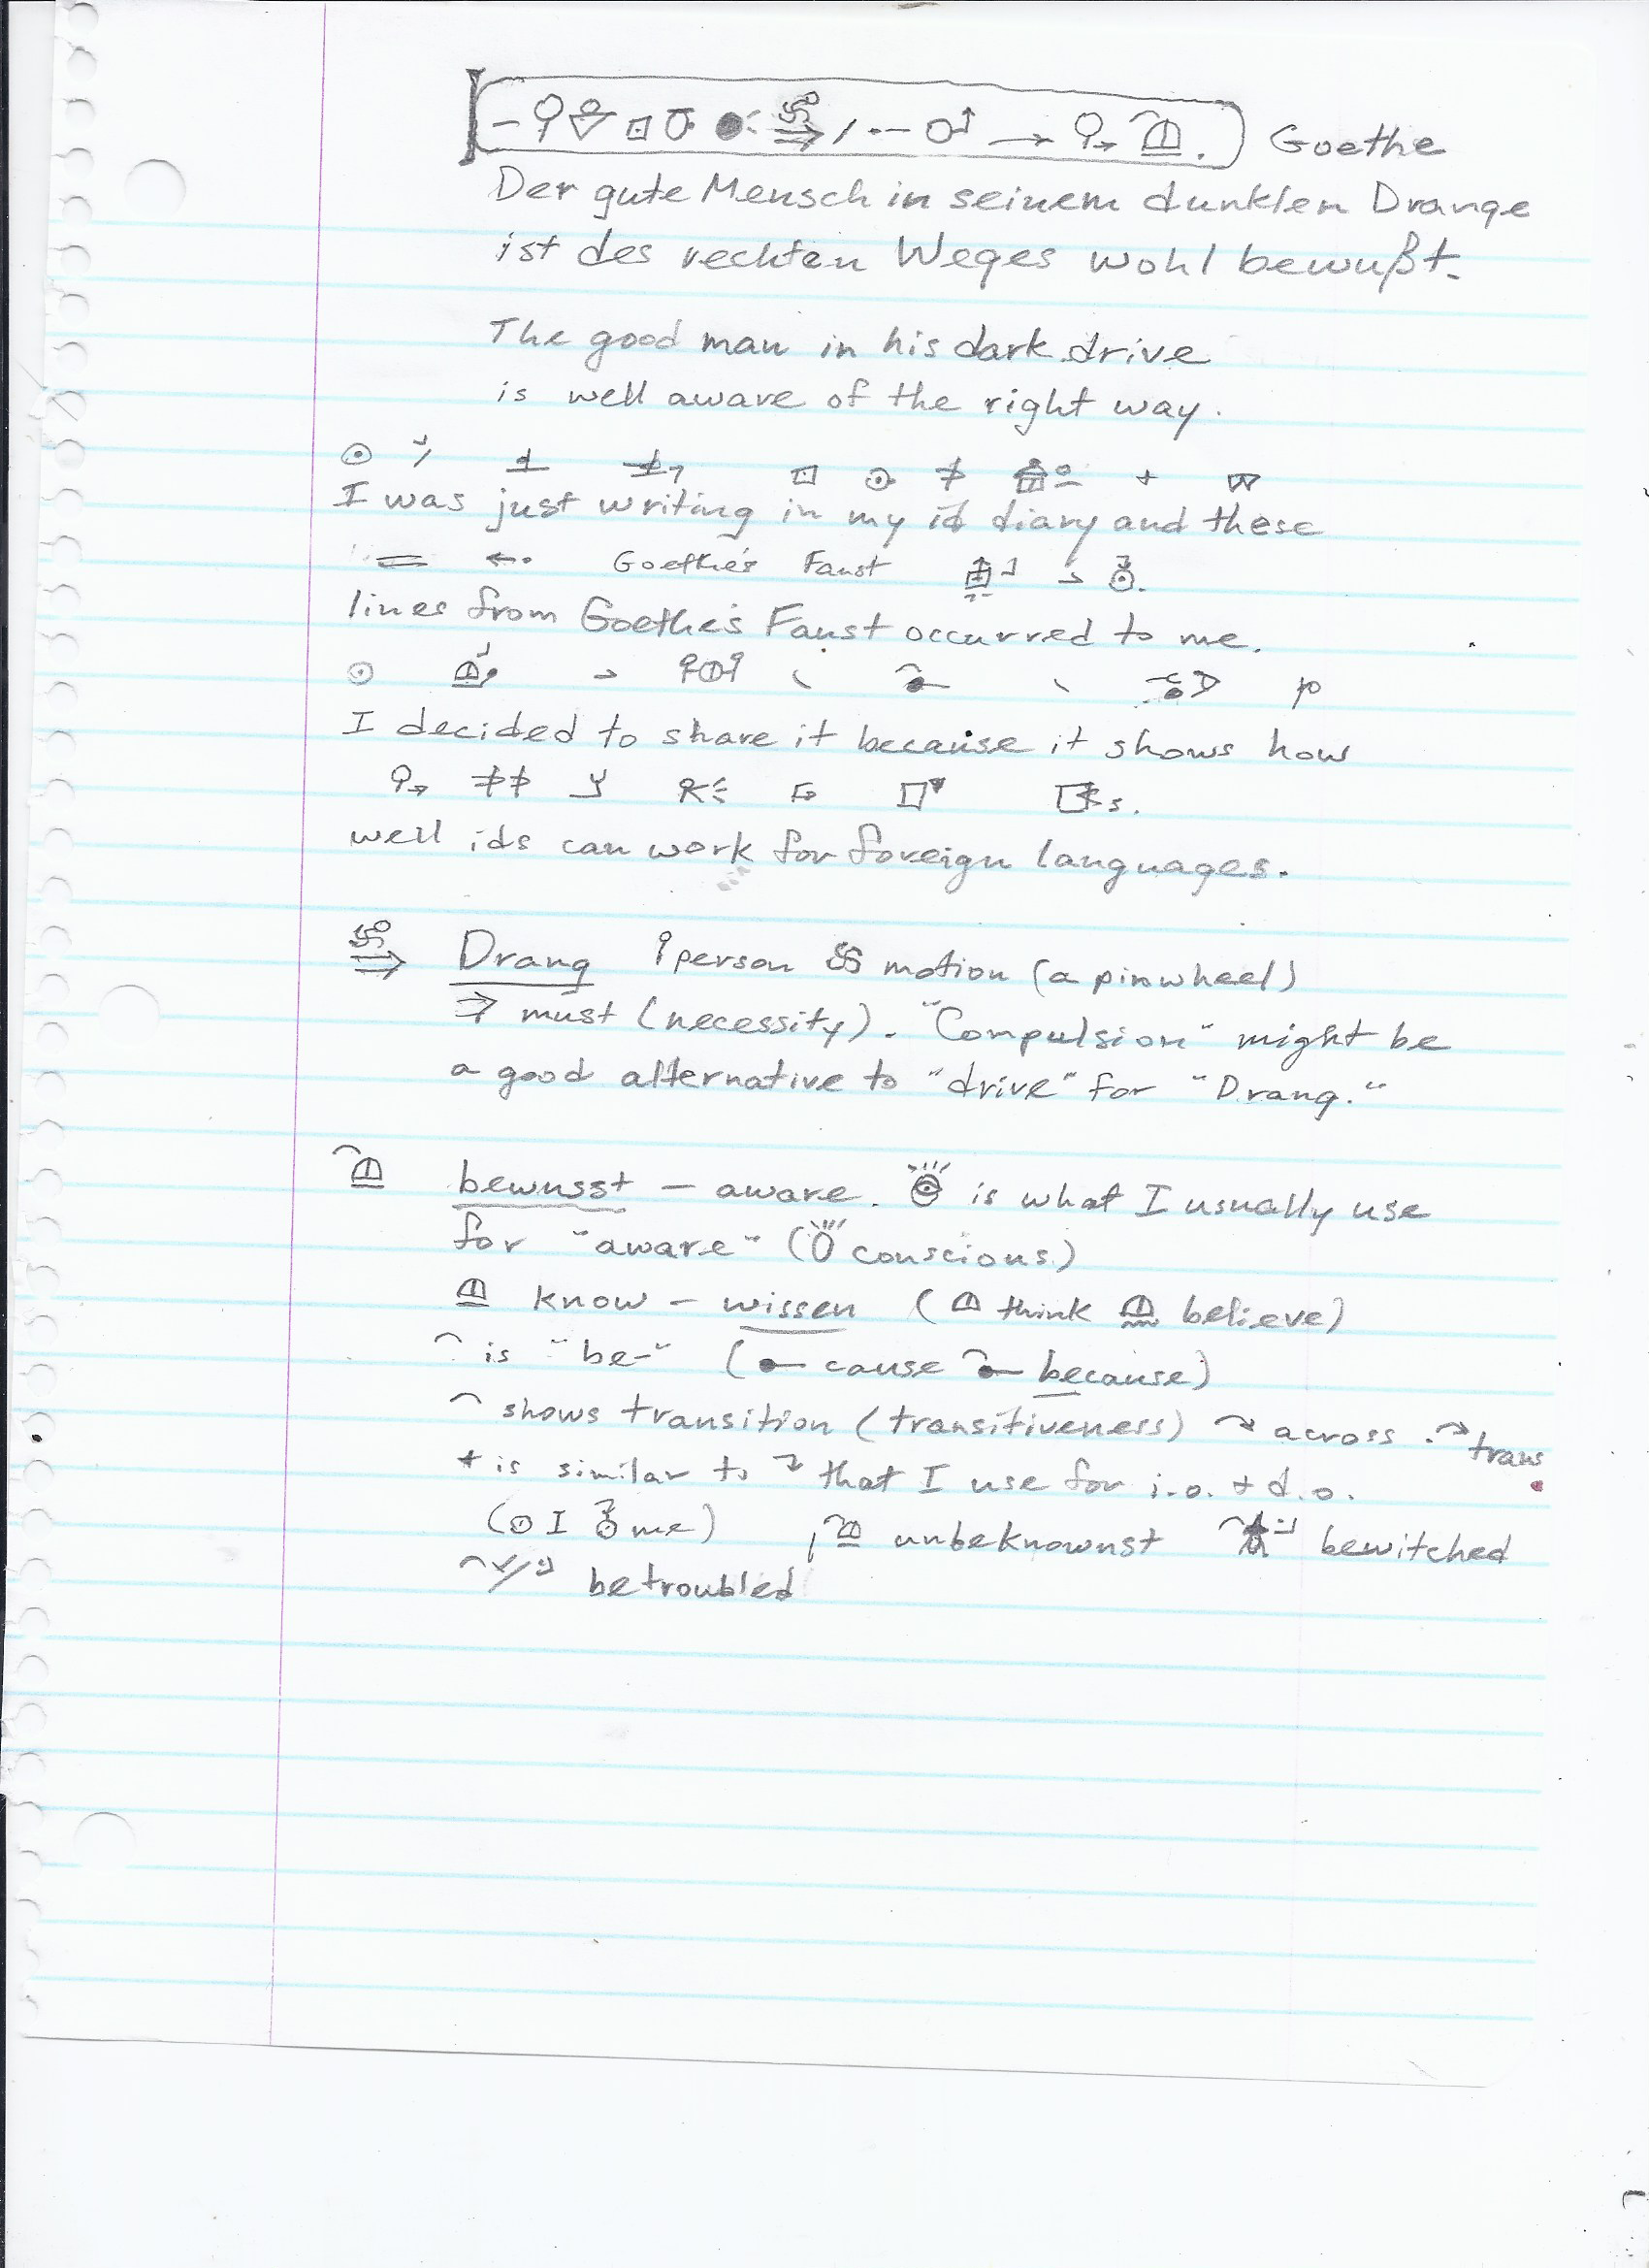 Goethe
Der gute Mensch in seinem dunklen Drange
ist des rechten Weges wohl bewußt.
The good man in his dark drive
is well aware of the right way.
I was just writing in my id diary and these
Goethe's Faust
lines from Goethe's Faust occurred to me.
I decided to share it because it shows how
s.
well ids can work for foreign languages.
Drang person motion (a pinwheel)
must (necessity). "Compulsion" might be
a good alternative to "drive" for "Drang."
bewusst – aware. is what I usually use
for "aware" ( conscious.)
know – wissen ( think believe)
is "be-" ( cause because)
shows transition (transitiveness) across trans
is similar to that I use for i.o. + d.o.
( I me) unbeknownst bewitched
betroubled